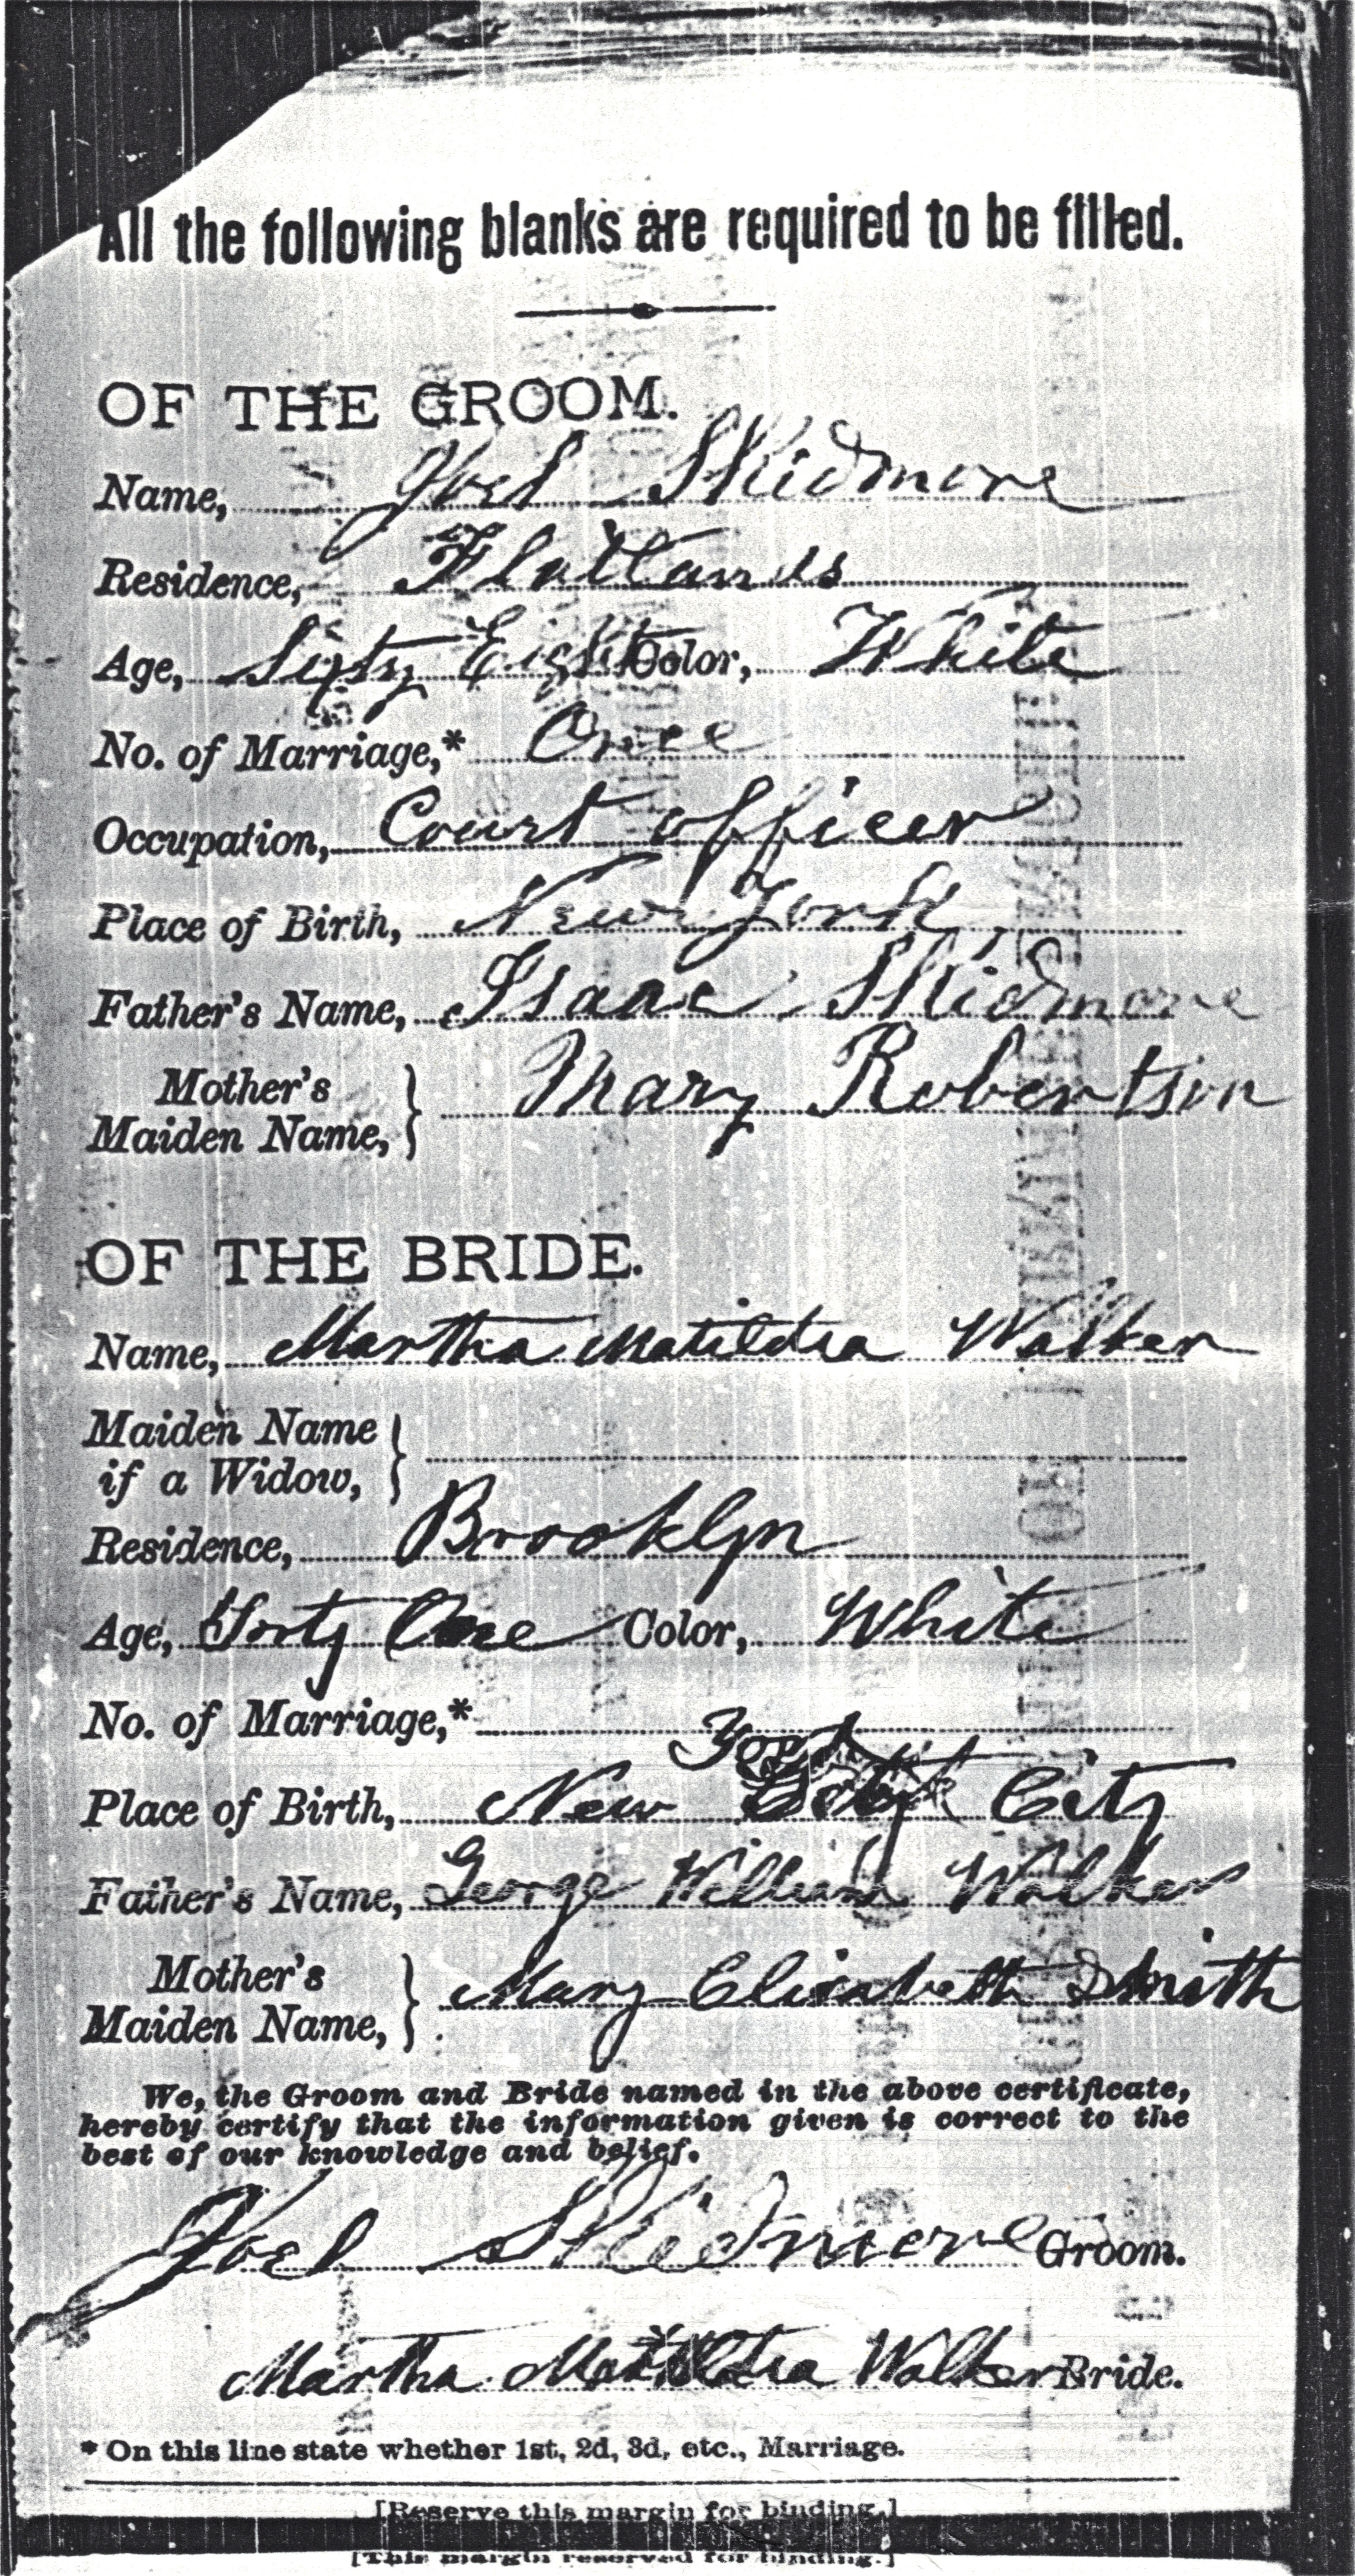 All the following blanks are required to be filled.
OF THE GROOM.
Name, Joel Skidmore
Residence, Flatlands
Age, Sixty Eight Color, White
No. of Marriage,* Once
Occupation, Court officer
Place of Birth, New York
Father's Name, Isaac Skidmore
Mother's Maiden Name, } Mary Robertson
OF THE BRIDE.
Name, Martha Matildia Walker
Maiden Name if a Widow, }
Residence, Brooklyn
Age, Forty One Color, White
No. of Marriage,*
York
Place of Birth, New City
Father's Name, George William Walker
Mother's Maiden Name, } Mary Elizabeth Smith
We, the Groom and Bride named in the above certificate,
hereby certify that the information given is correct to the
best of our knowledge and belief.
Joel Skidmore Groom.
Martha Matildia Walker Bride.
* On this line state whether 1st, 2d, 3d, etc., Marriage.
[Reserve this margin for binding.]
[This margin reserved for binding.]